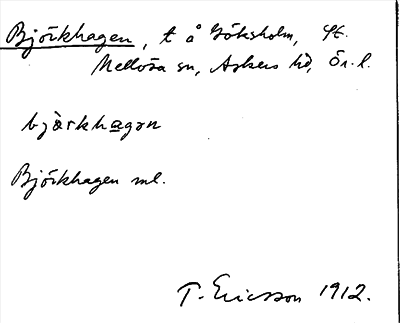 Björkhagen, t å Göksholm, St.
Mellösa sn, Askers hd, Ör. l.
bjàrkhagən
Björkhagen ml.
T. Ericsson 1912.